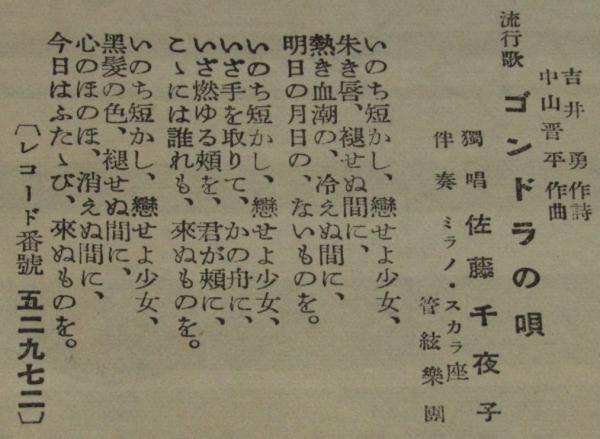 吉井勇作詩
中山晋平作曲
流行歌 ゴンドラの唄
獨唱 佐藤千夜子
伴奏 ミラノ・スカラ座
管絃樂團
いのち短かし、戀せよ少女、
朱き唇、褪せぬ間に、
熱き血潮の、冷えぬ間に、
明日の月日の、ないものを。
いのち短かし、戀せよ少女、
いざ手を取りて、かの舟に、
いざ燃ゆる頬を、君が頬に、
こゝには誰れも、來ぬものを。
いのち短かし、戀せよ少女、
黑髪の色、褪せぬ間に、
心のほのほ、消えぬ間に、
今日はふたゝび、來ぬものを。
〔レコード番號 五二九七二〕